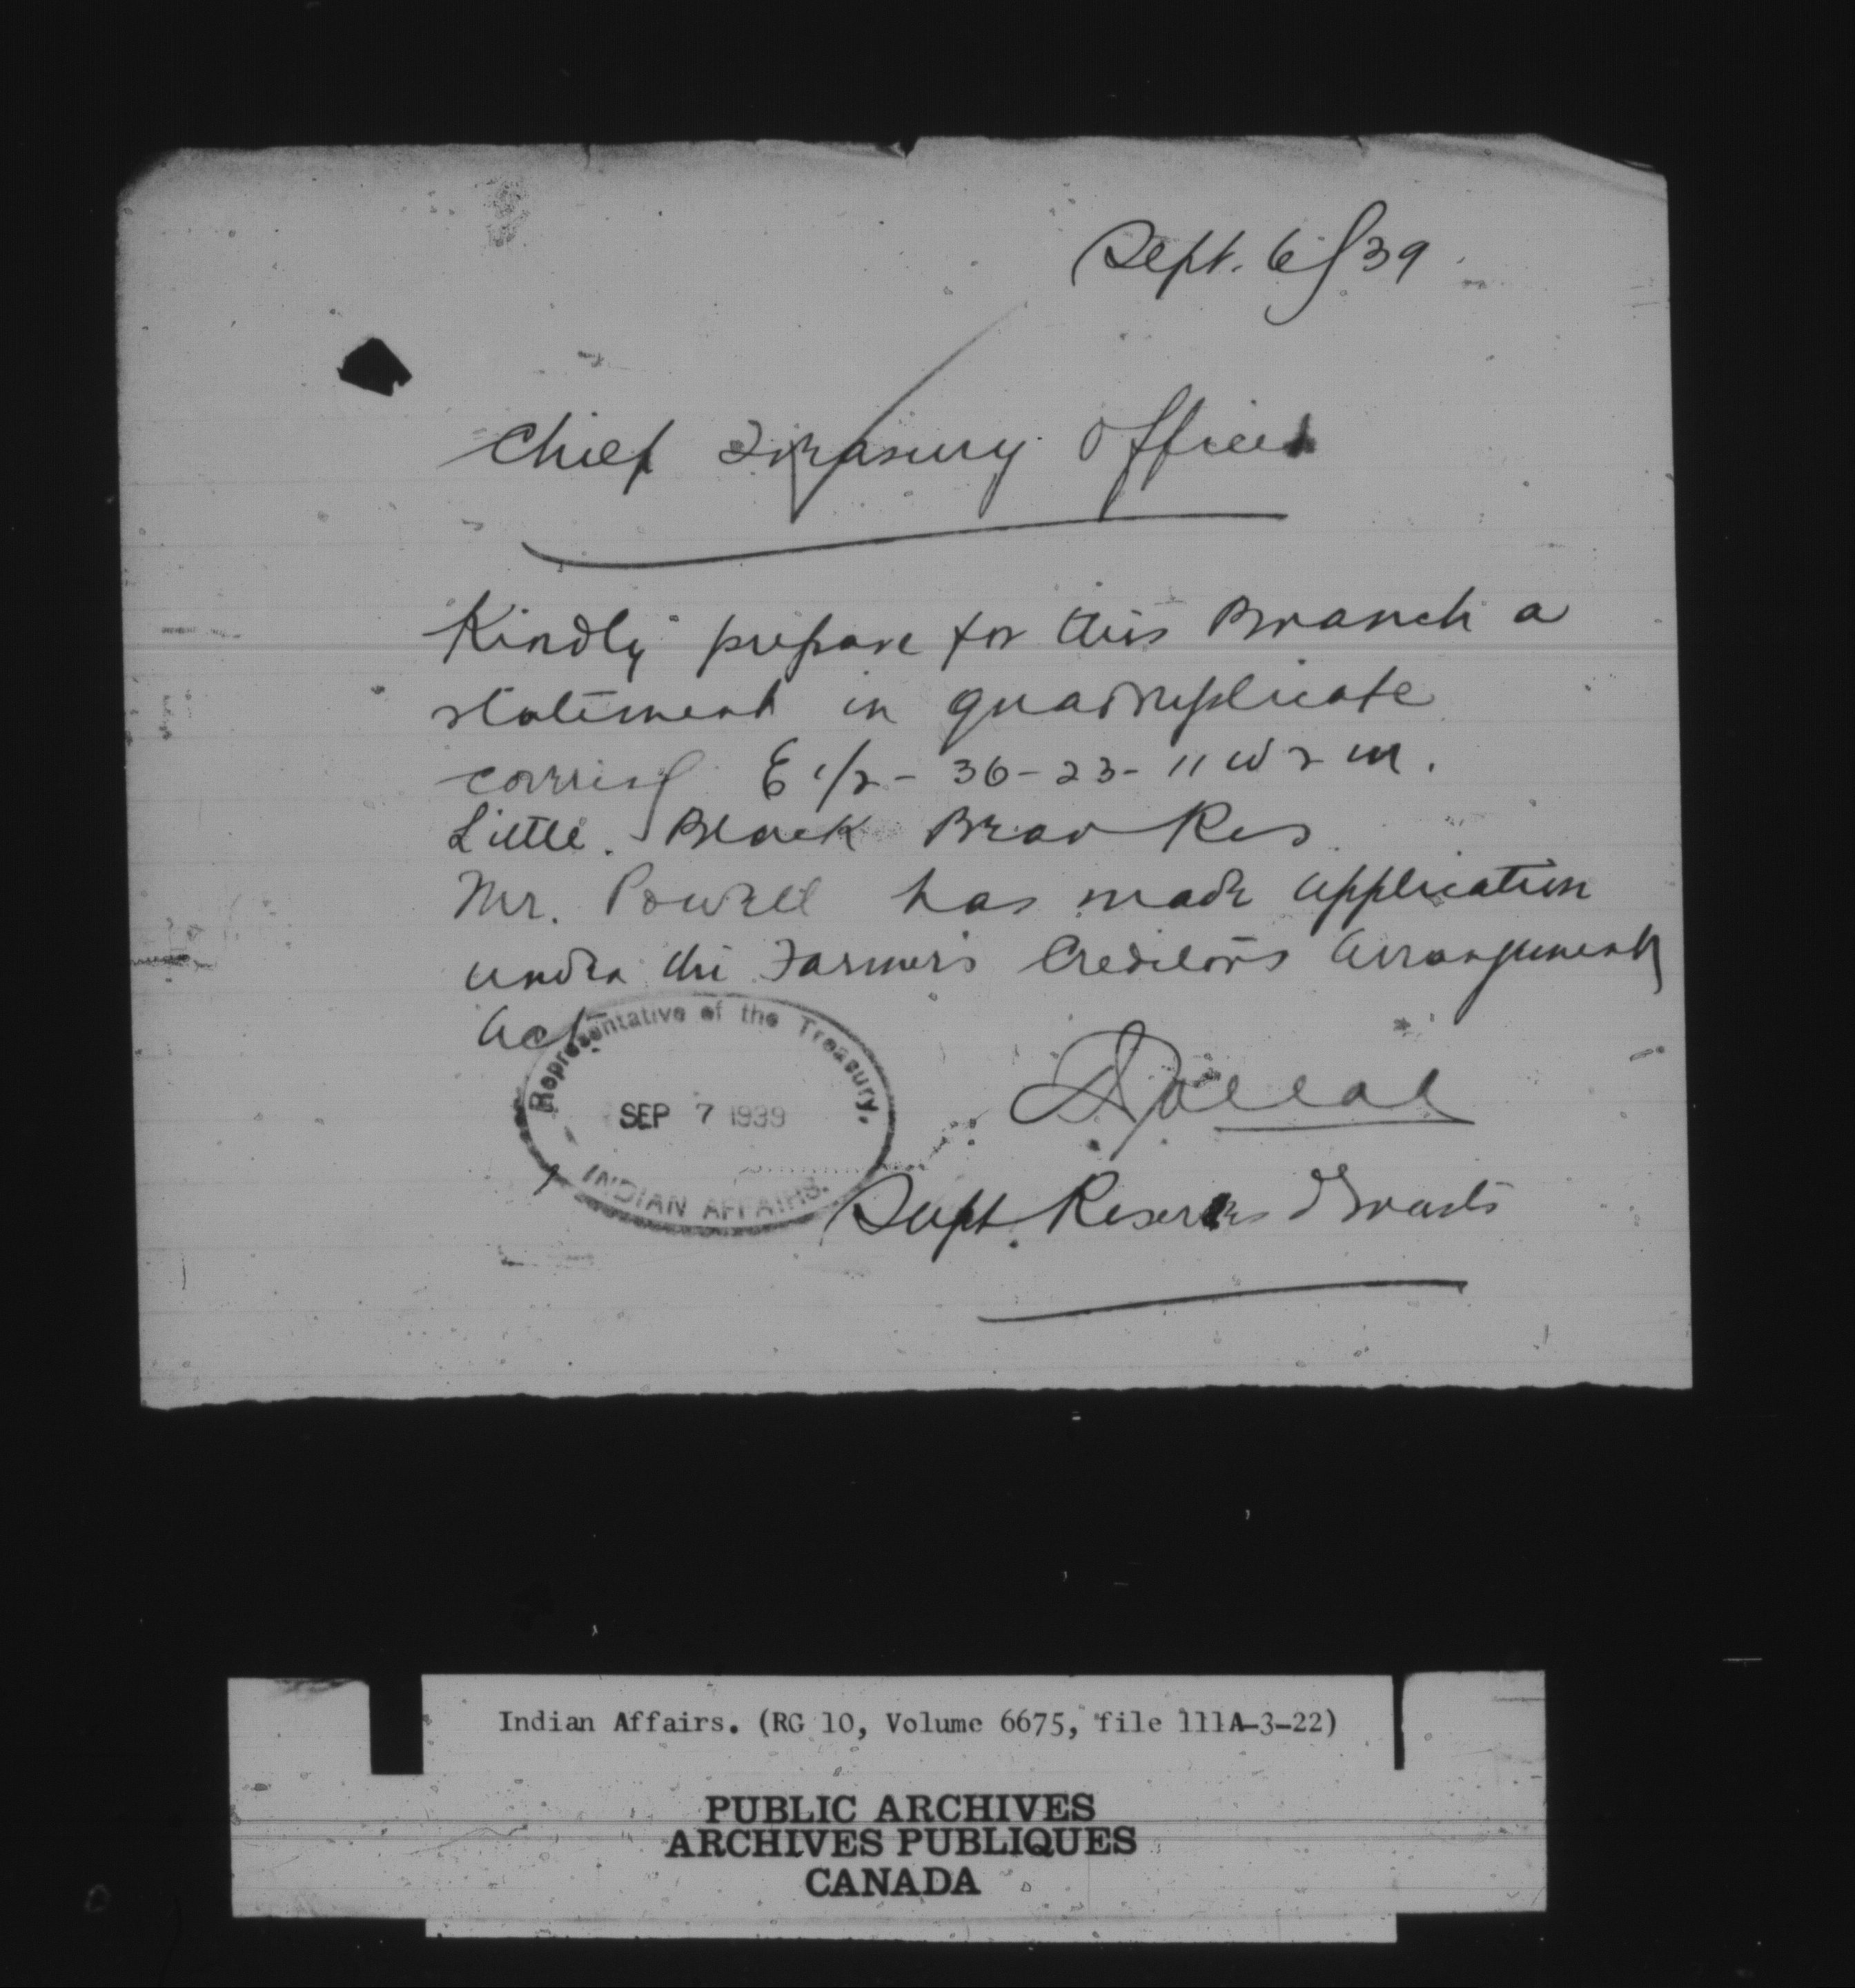 Sept. 6/39
Chief Treasury Officer
Kindly prepare for this Branch a
statement in quadruplicate
E 1/2 - 36-23-11 W 2 M.
Little Black Bear Res
Mr. Powell has made application
under the Farmers Creditors Arrangement
Act.
Representative of the Treasury,
SEP 7 1939
INDIAN AFFAIRS.
Supt. Reserves & Trusts
Indian Affairs. (RG 10, Volume 6675, file 111A-3-22)
PUBLIC ARCHIVES
ARCHIVES PUBLIQUES
CANADA